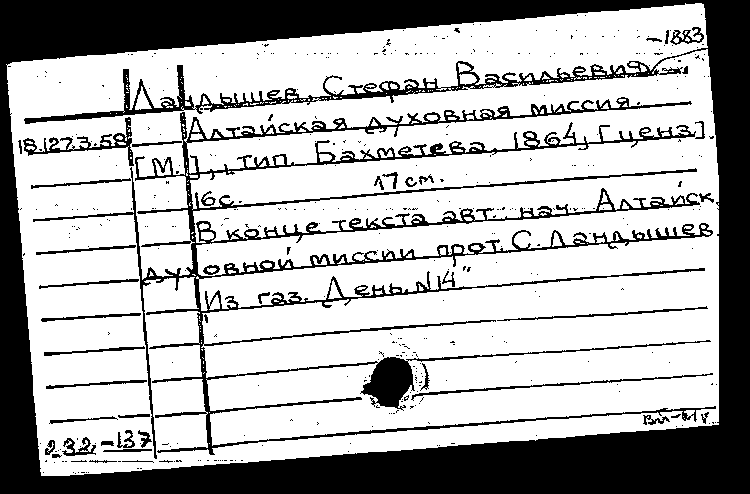 -1883
Ландышев, Стефан Васильевич
Алтайская духовная миссия.
18.127.3.58
[М.], тип. Бахметева, 1864, [ценз].
16с. 17 см.
В конце текста авт.: нач. Алтайск.
духовной миссии прот. С. Ландышев
"Из газ. День, N14"
232-137